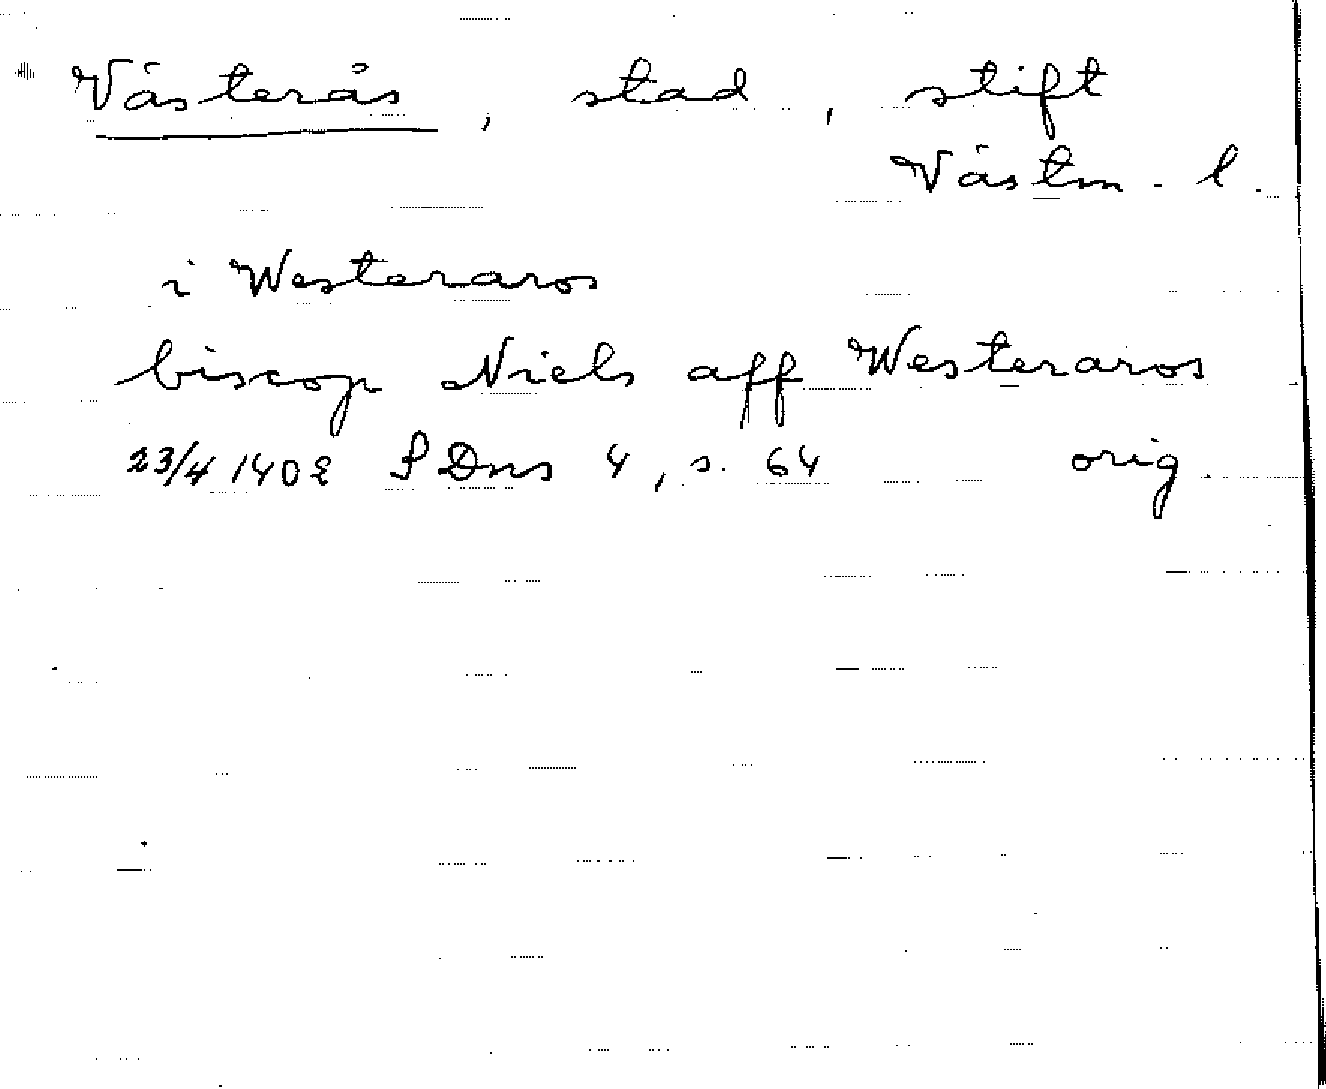 Västerås, stad, stift
Västm. l.
i Westeraros
biscop Niels aff Westeraros
23/4 1402 SDns 4, s. 64 orig.